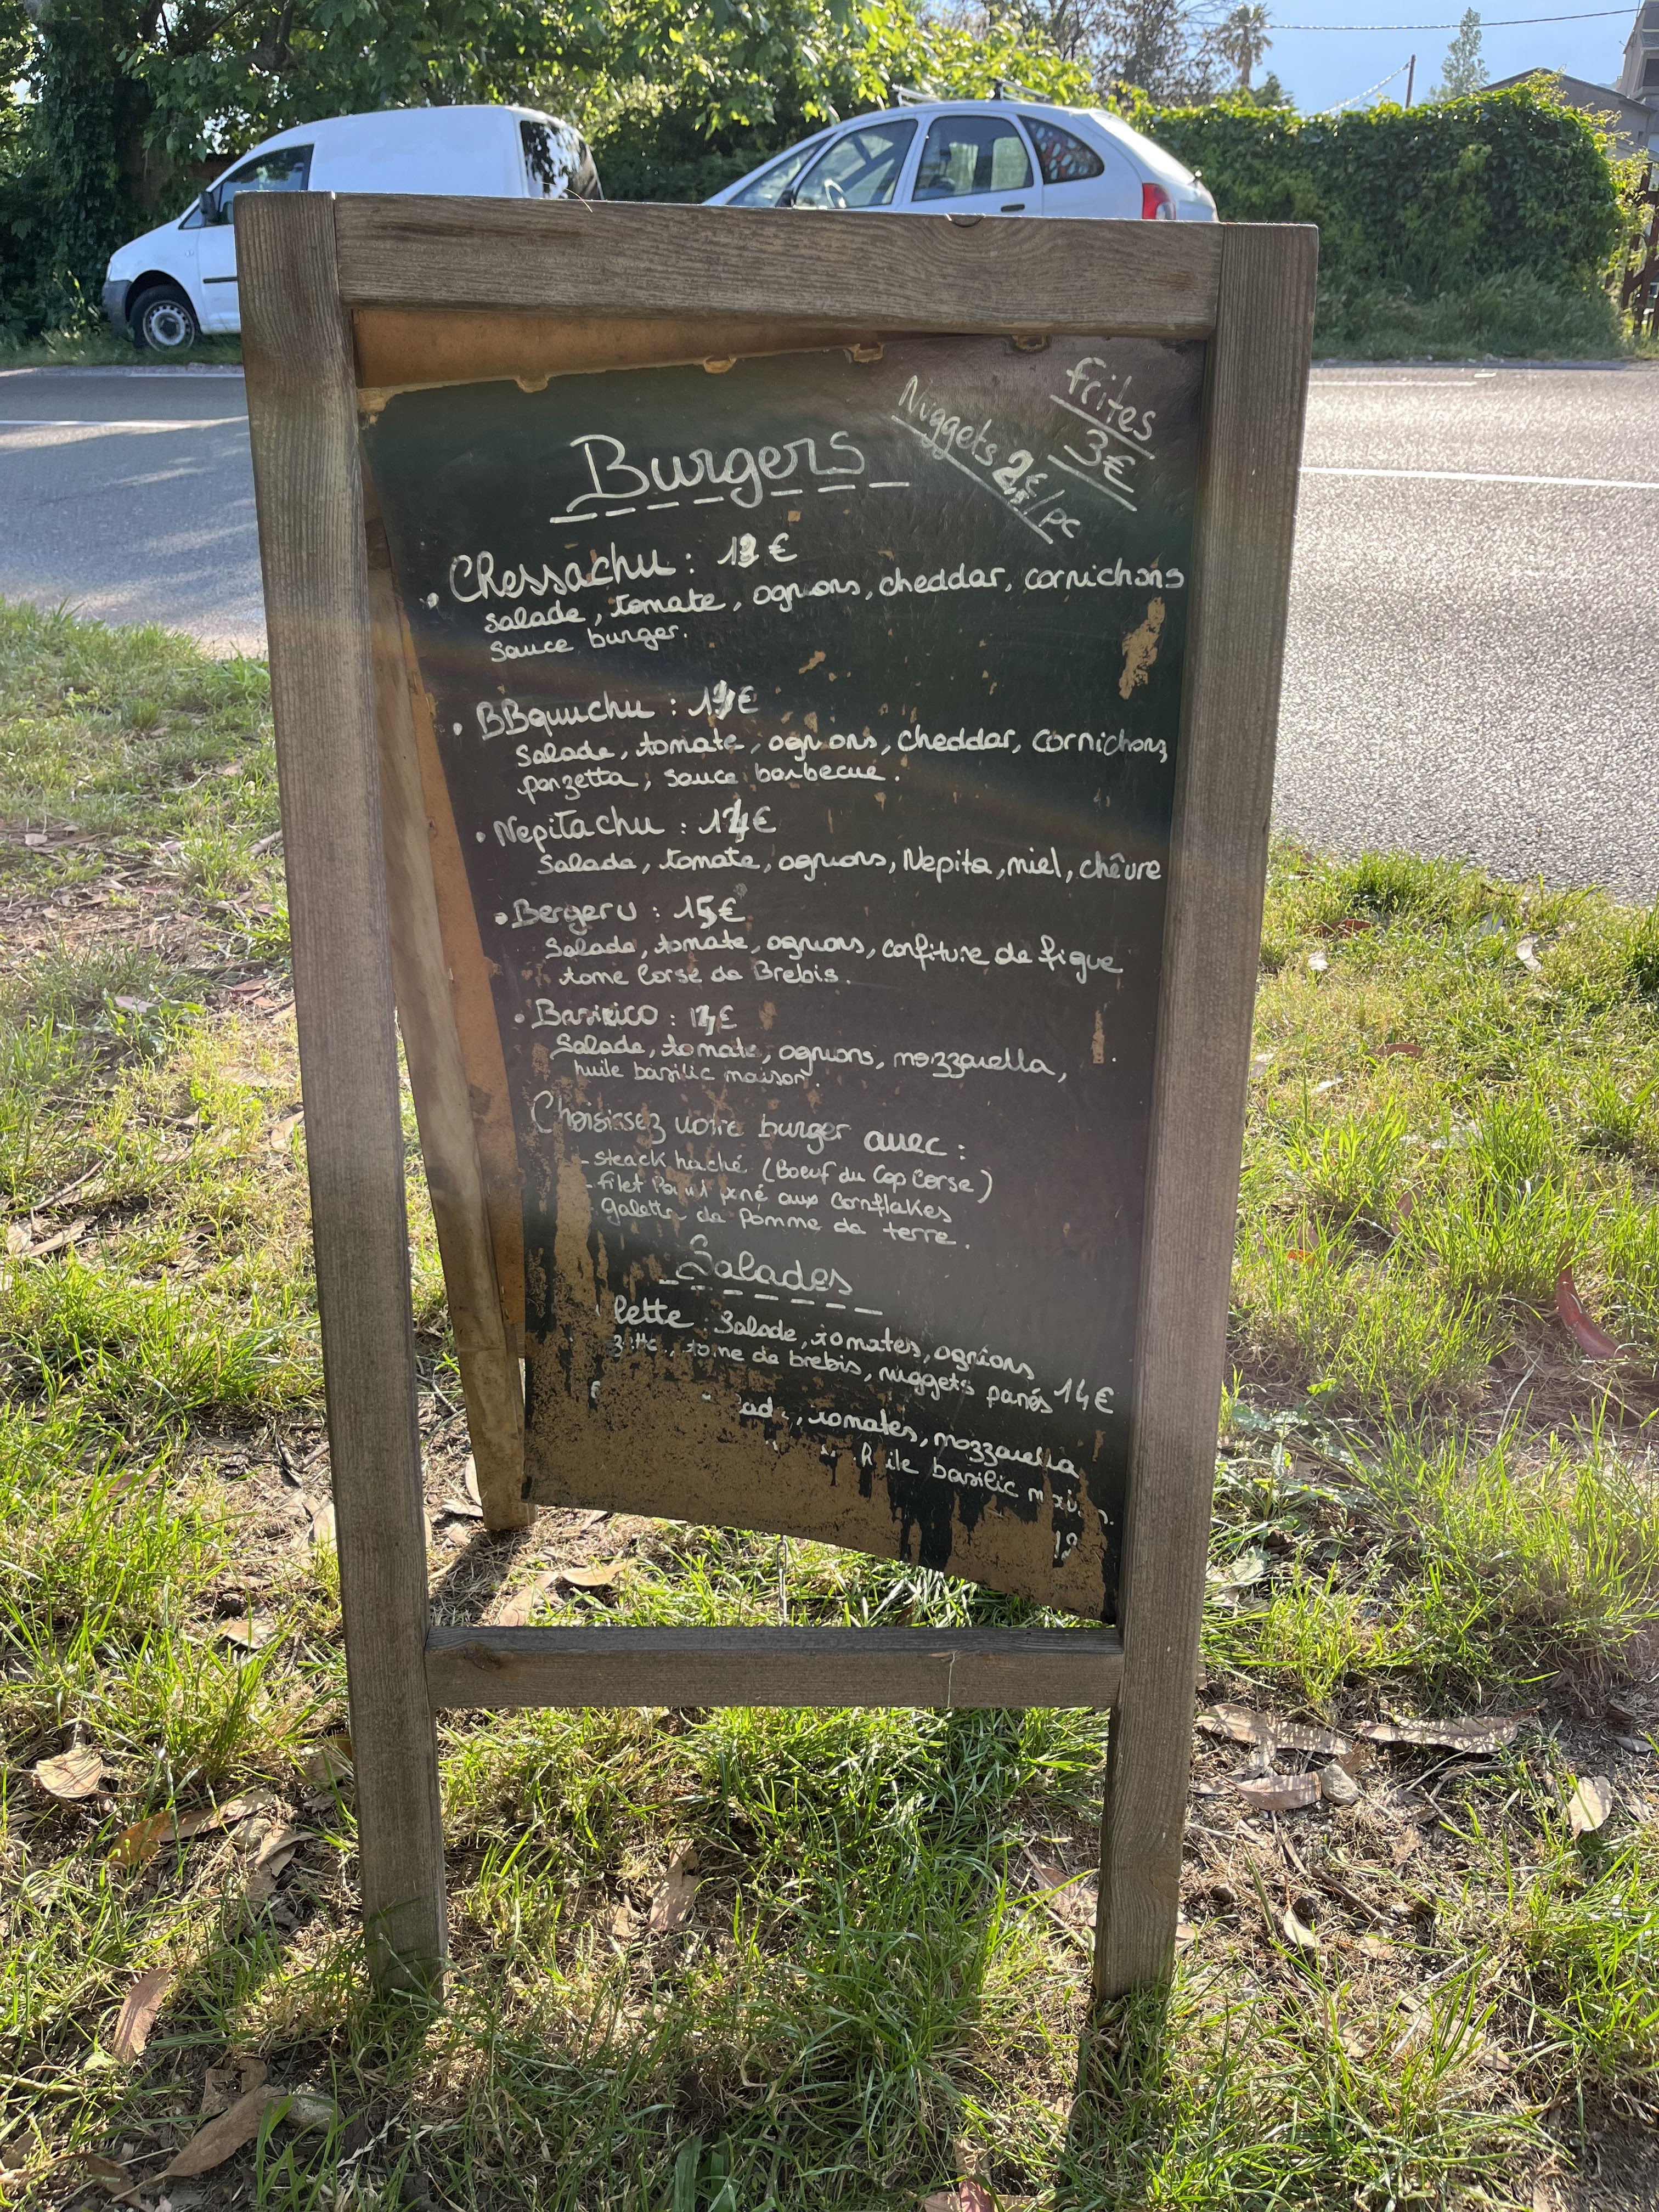 frites
3€
Nuggets 2€/pc
Burgers
• Chessachu : €
Salade, tomate, ognions, cheddar, cornichons
Sauce burger.
• BBquuchu : €
Salade, tomate, ognions, cheddar, cornichons,
panzetta, sauce barbecue.
• Nepitachu : 14€
Salade, tomate, ognions, Nepita, miel, chêvre
• Bergeru : 15€
Salade, tomate, ognions, confiture de figue
tome Corse de Brebis.
• : €
Salade, tomate, ognions, mozzarella,
huile basilic maison.
Choisissez votre burger avec :
- Steack haché (Boeuf du Cap Corse)
- Filet pané aux Cornflakes
Galette de Pomme de terre.
Salades
lette : Salade, tomates, ognions
tome de brebis, nuggets panés 14€
, tomates, mozzarella
basilic